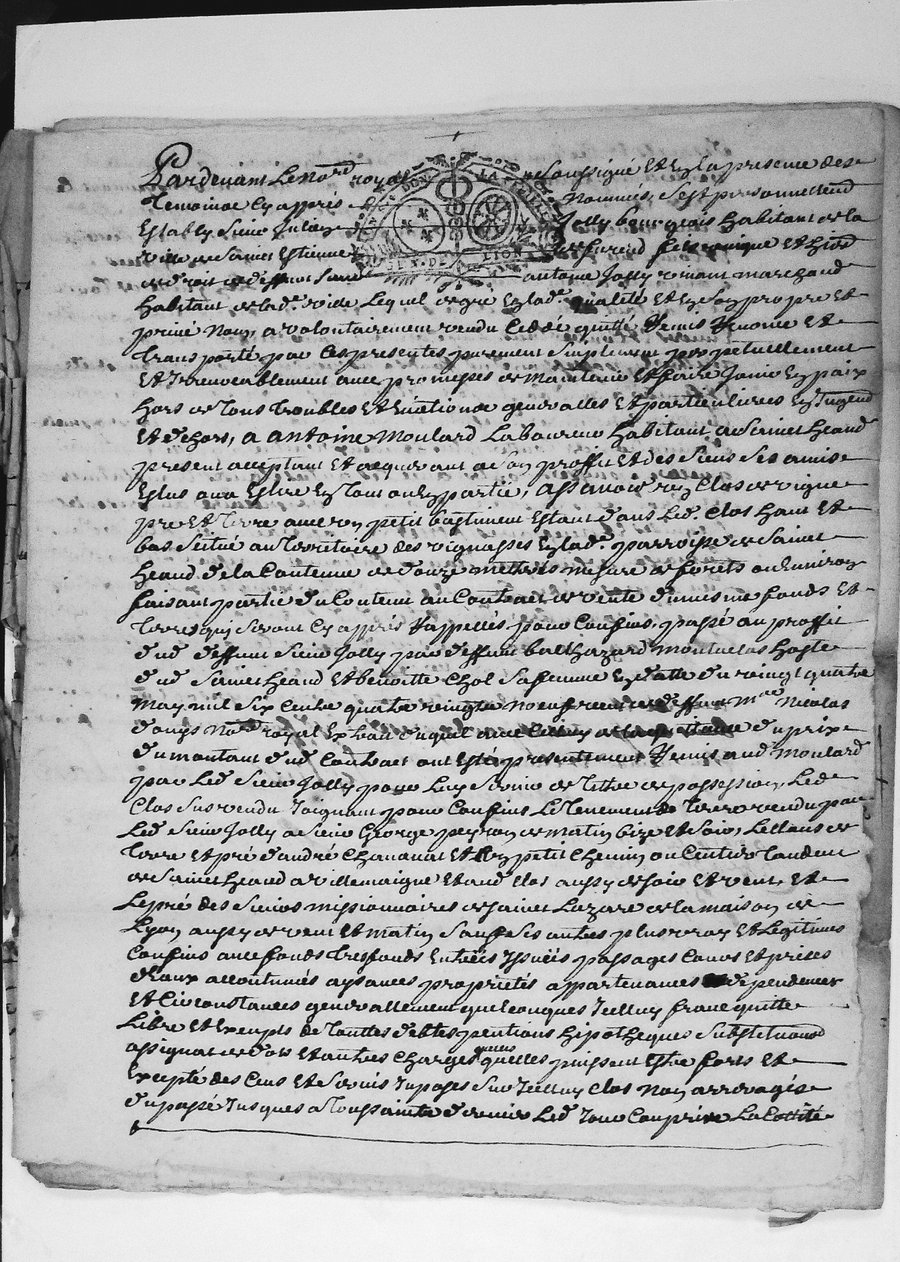 Pardevant Le No.re royal soussigné Et En La presence des
Temoins Cy appres Nommés, s'est personnellem.t
Estably Sieur Jolly bourgeois habitant de la
ville de Saint Estienne de furand et hoirs
de droit de deffunt Sieur antoine Jolly vivant marchand
habitant de lad.e ville Lequel de gre En lad.e qualité Et En son propre Et
privé Nom, a volontairement vendu Ceddé quitté Remis Et
Transporté par Ces presentes purement simplement perpetuellement
Et Irrevocablement avec promesses de Maintenir Et faire Jouir En paix
hors de tous Troubles Et Evictions generalles Et particulieres En Jugem.t
Et dehors, a Antoine Moulard Laboureur habitant de Sainct heand
present acceptant Et acquerant a son proffit Et des siens ses amis
Eslus ou a Eslire En tout ou En partie, assavoir un Clos de vigne
pre Et terre avec un petit bastiment Estant dans Led. Clos haut Et
bas scitué au territoire des vignasses En lad.e parroisse de Sainct
heand de la Contenue de douze mettres mesure de forets ou Environ
faisant partie du Contenu au Contract de vente dumesme fonds Et
Terres qui seront Cy appres Rappellés pour Confins, passé au proffit
dud deffunt Sieur Jolly par deffunt balthazard montuclas hoste
dud Sainct heand Et benoitte Chol sa femme En datte du vingt quatre
May mil six Cents quatre vingts neuf receu de deffunt M.re Nicolas
No.re royal Extrait duquel avec de la quittance du prix
du montant dud Contract ont Esté presentement Remis aud Moulard
par Led Sieur Jolly pour Luy servir de titre de possession, Led
Clos sus vendu Joignant pour Confins Le tenement de terre vendu par
Led Sieur Jolly a Sieur George peyron de matin bize Et soir, Les
terre Et pré d'andré Chavanat Et un petit Chemin ou Centier tendent
de Sainct heand a villemaigne Et aud Clos aussy de soir Et vent, Et
Le pré des Sieurs missionnaires de Saint Lazare de la maison de
Lyon aussy de vent Et matin sauf ses autres plus vray Et Legitimes
Confins avec fonds tresfonds Entrées Issuées passages Cours Et prises
d'eaux accoutumés aysances propriétés appartenances dependences
Et Circonstances generallement quelconques Icelluy franc quitte
Libre Et Exempt de touttes debtes pentions hipotheques substitutions
assignat de dots Et autres Charges quelles puissent Estre forts Et
Excepté des Cens Et servis Imposés sur Icelluy Clos Non arreragés
du passé Jusques a toussaints dernier Led Jour Compris La Cottité